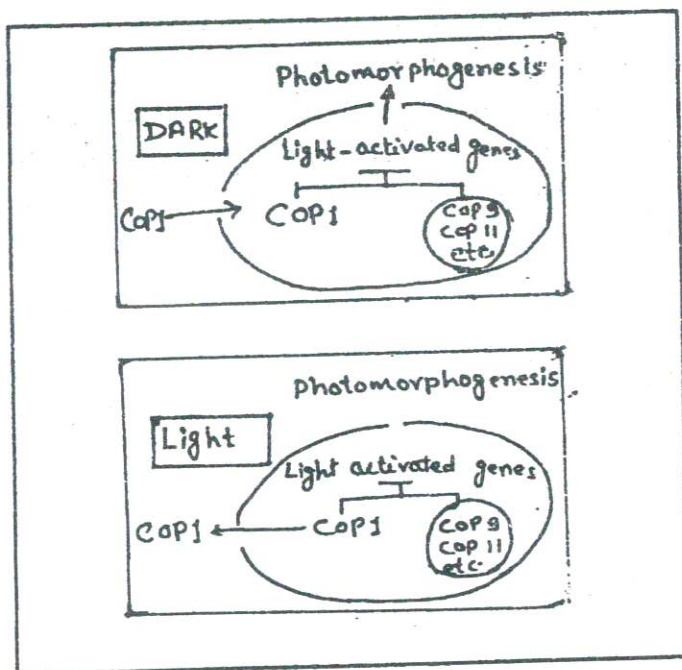 Photomorphogenesis
DARK
Light-activated genes
COP1
COP1
COP 9
COP 11
etc
Photomorphogenesis
Light
Light activated genes
COP1
COP1
COP 9
COP 11
etc.